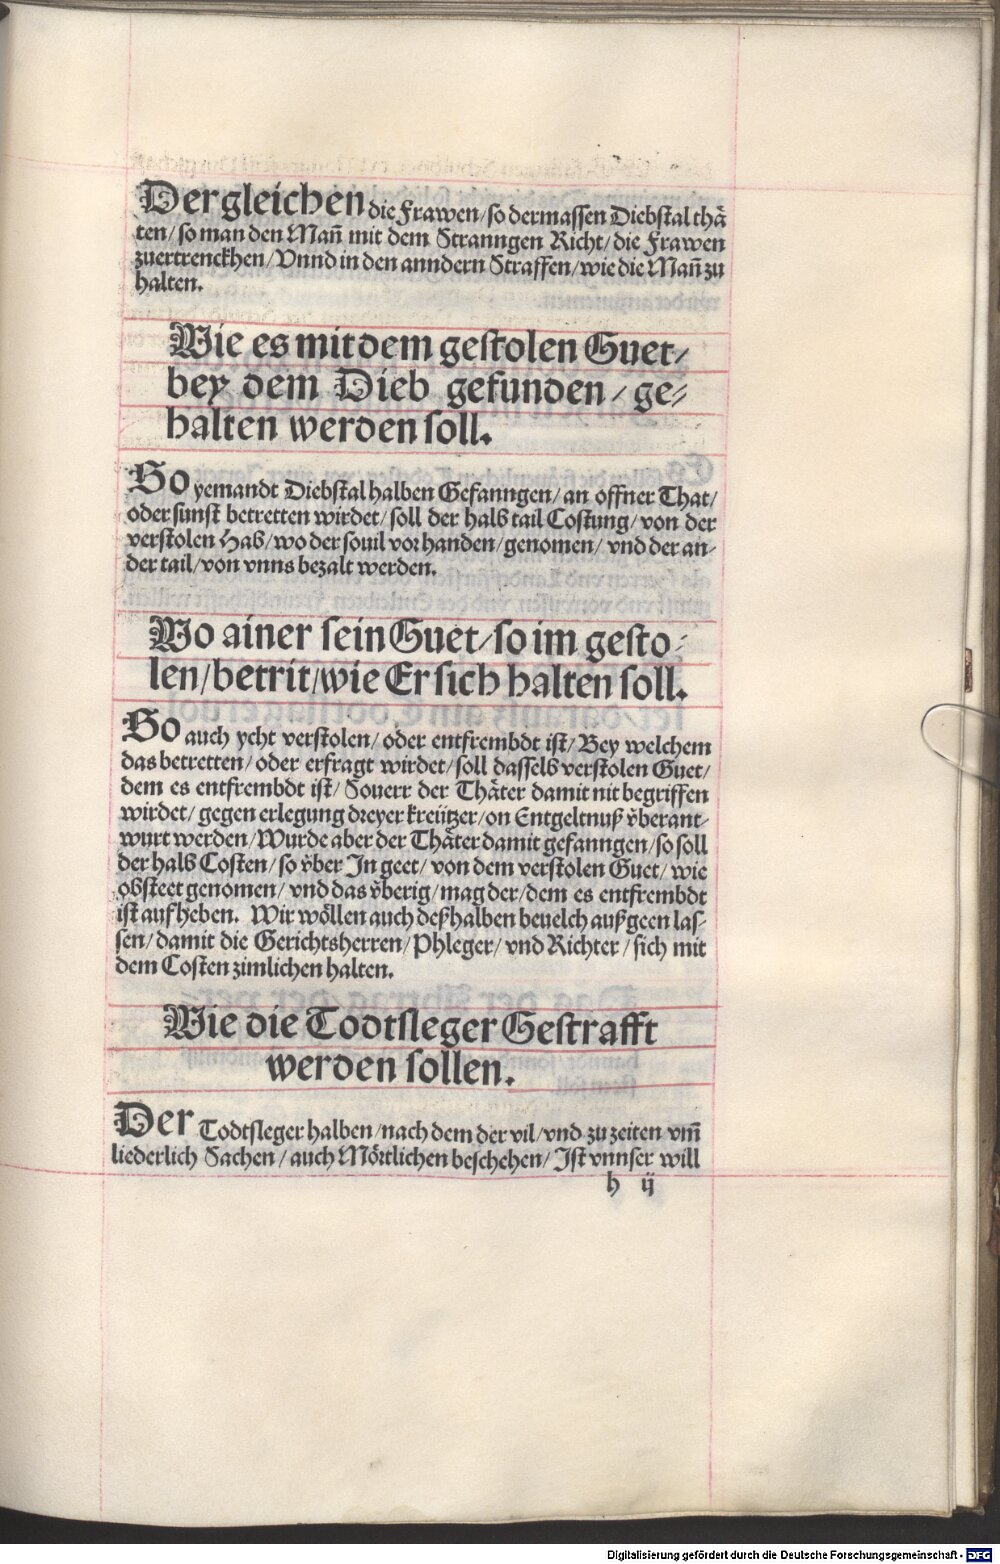 Dergleichen die Frawen/ so dermassen Diebstal thå
ten/ so man den Man̄ mit dem Stranngen Richt/ die Frawen
zuertrenckhen/ Vnnd in den anndern Straffen/ wie die Man̄ zu
halten.
Wie es mit dem gestolen Guet/
bey dem Dieb gefunden/ ge⸗
halten werden soll.
So yemandt Diebstal halben Gefanngen/ an offner That/
oder sunst betretten wirdet/ soll der halb tail Costung/ von der
verstolen Hab/ wo der souil vorhanden/ genomen/ vnd der an⸗
der tail/ von vnns bezalt werden.
Wo ainer sein Guet/ so im gesto⸗
len/ betrit/ wie Er sich halten soll.
So auch ycht verstolen/ oder entfrembdt ist/ Bey welchem
das betretten/ oder erfragt wirdet/ soll dasselb verstolen Guet/
dem es entfrembdt ist/ Souerr der Thåter damit nit begriffen
wirdet/ gegen erlegung dreyer kreützer/ on Entgeltnuß v̈berant⸗
wurt werden/ Wurde aber der Thåter damit gefanngen/ so soll
der halb Costen/ so v̈ber In geet/ von dem verstolen Guet/ wie
obsteet genomen/ vnd das v̈berig/ mag der/ dem es entfrembdt
ist aufheben. Wir wöllen auch deßhalben beuelch außgeen las⸗
sen/ damit die Gerichtsherren/ Phleger/ vnd Richter/ sich mit
dem Costen zimlichen halten.
Wie die Todtsleger Gestrafft
werden sollen.
Der Todtsleger halben/ nach dem der vil/ vnd zu zeiten vm̄
liederlich Sachen/ auch Mörtlichen beschehen/ Ist vnnser will
h ij
Digitalisierung gefördert durch die Deutsche Forschungsgemeinschaft - DFG